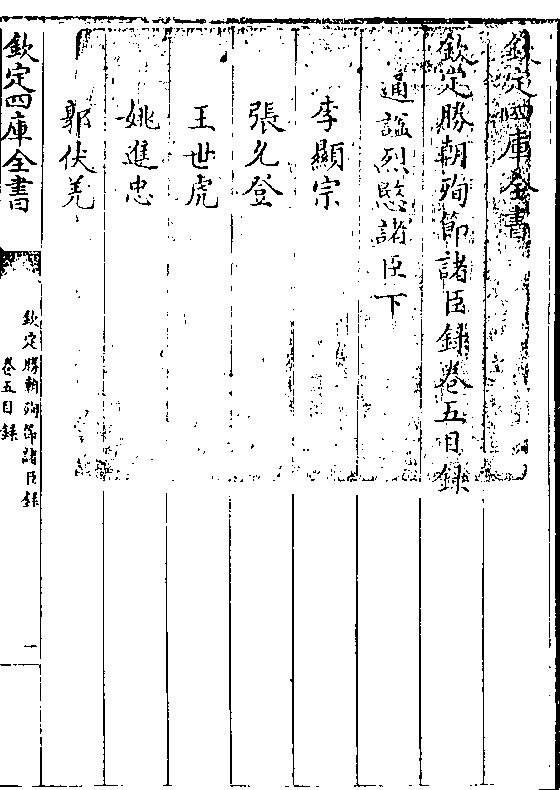 欽定四庫全書
欽定勝朝殉節諸臣録卷五目録
通謚烈愍諸臣下
李顯宗
張允登
王世虎
姚進忠
郭伏羌
欽定四庫全書
欽定勝朝殉節諸臣録
卷五目録
一